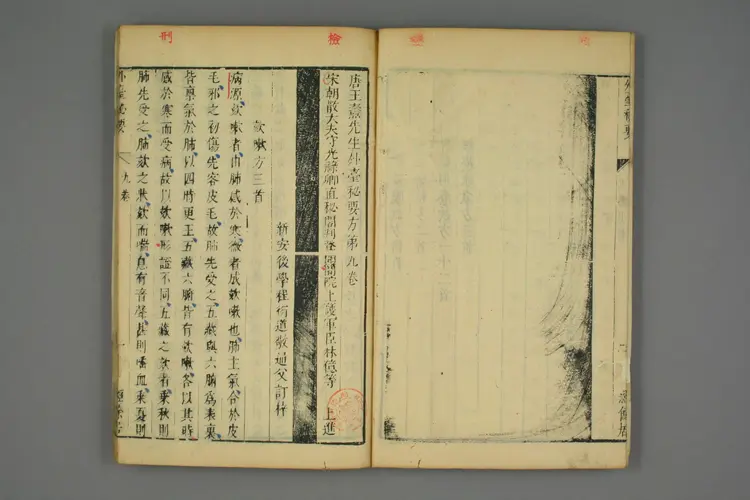 外臺秘要
唐王燾先生外臺秘要方第九卷
宋朝散大夫守光祿卿直秘閣判登聞簡院上護軍臣林億等 上進
新安後學程衍道敬通父訂梓
欬嗽方三首
病源欬嗽者由肺感於寒微者成欬嗽也肺主氣合於皮
毛邪之初傷先客皮毛故肺先受之五臟與六腑為表裏
皆稟氣於肺以四時更王五臟六腑皆有欬嗽各以其時
感於寒而受病故以欬嗽形證不同五臟之欬者乘秋則
肺先受之肺欬之狀欬而喘息有音聲甚則嘔血乘夏則
外臺秘要 九卷 一
刑
檢